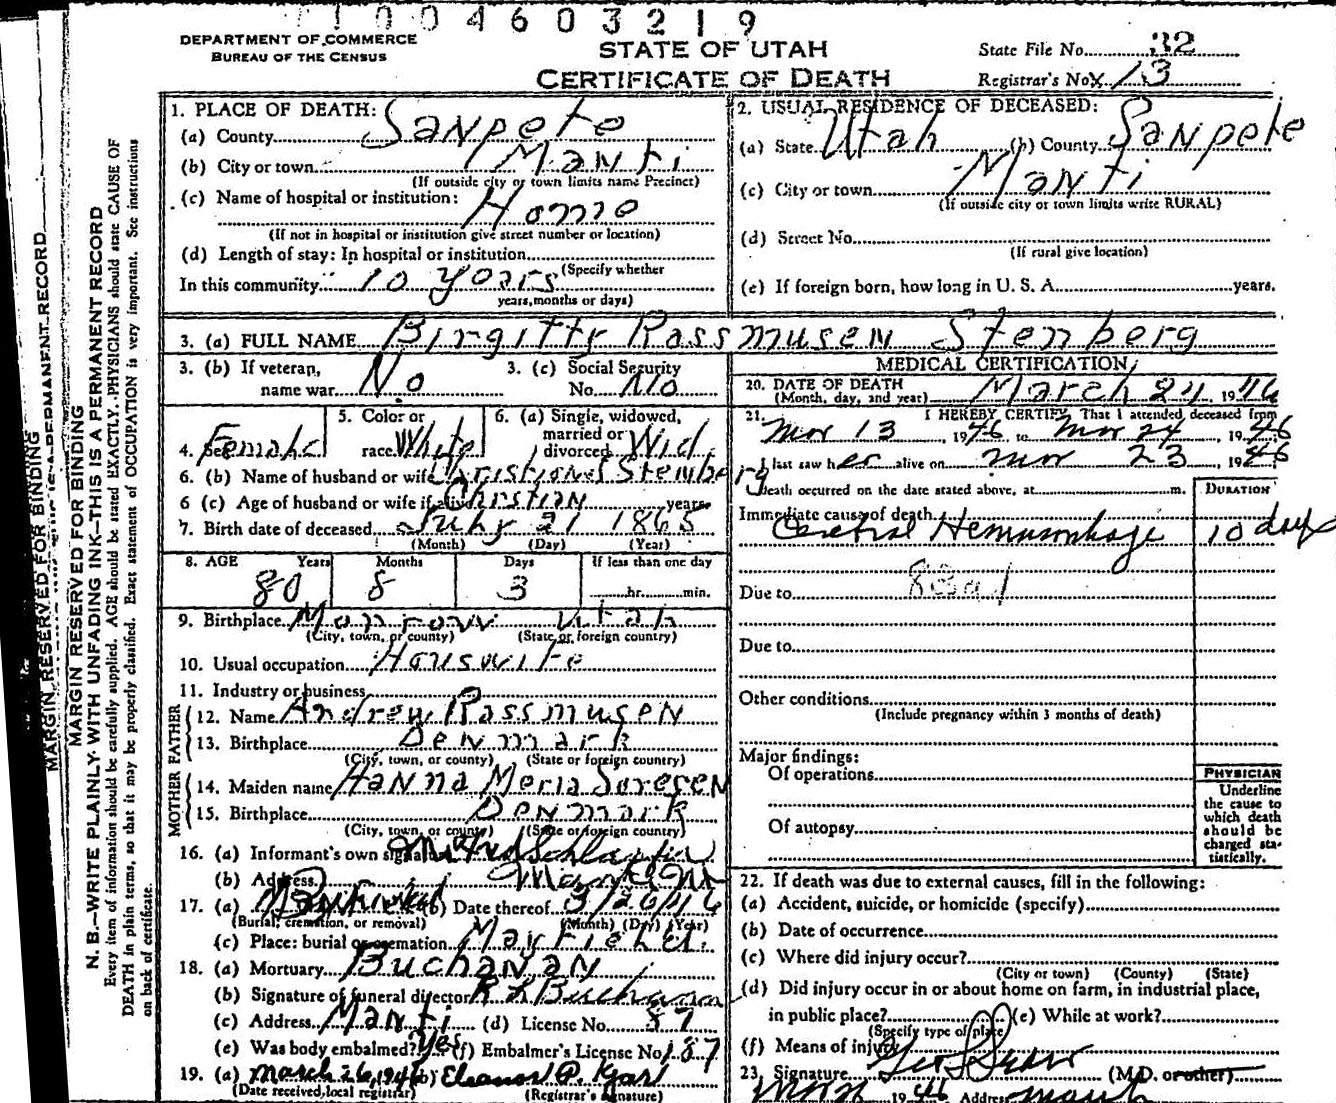 1004603219
DEPARTMENT OF COMMERCE
BUREAU OF THE CENSUS
STATE OF UTAH
CERTIFICATE OF DEATH
State File No. 32
Registrar's No. 13
MARGIN RESERVED FOR BINDING
N. B.—WRITE PLAINLY WITH UNFADING INK—THIS IS A PERMANENT RECORD
Every item of information should be carefully supplied. AGE should be stated EXACTLY. PHYSICIANS should state CAUSE OF
DEATH in plain terms, so that it may be properly classified. Exact statement of OCCUPATION is very important. See instructions
on back of certificate.
1. PLACE OF DEATH:
(a) County Sanpete
(b) City or town Manti
(If outside city or town limits name Precinct)
(c) Name of hospital or institution:
Home
(If not in hospital or institution give street number or location)
(d) Length of stay: In hospital or institution
(Specify whether
In this community 10 years
years, months or days)
2. USUAL RESIDENCE OF DECEASED:
(a) State Utah (b) County Sanpete
(c) City or town Manti
(If outside city or town limits write RURAL)
(d) Street No.
(If rural give location)
(e) If foreign born, how long in U. S. A. years.
3. (a) FULL NAME Birgitty Rassmusen Stenberg
3. (b) If veteran,
name war No
3. (c) Social Security
No. No
4. Sex Female
5. Color or
race White
6. (a) Single, widowed,
married or
divorced Wid.
6. (b) Name of husband or wife Stemberg
6 (c) Age of husband or wife if alive Christian years
7. Birth date of deceased July 21 1865
(Month) (Day) (Year)
8. AGE Years Months Days If less than one day
80 8 3 hr. min.
9. Birthplace Monroe Utah
(City, town, or county) (State or foreign country)
10. Usual occupation Houswife
11. Industry or business
FATHER
12. Name Andrew Rassmusen
13. Birthplace Denmark
(City, town, or county) (State or foreign country)
MOTHER
14. Maiden name Hanna Meria Soresen
15. Birthplace Denmark
(City, town, or county) (State or foreign country)
16. (a) Informant's own signature
(b) Address
17. (a) (b) Date thereof 3/26/46
(Burial, cremation, or removal) (Month) (Day) (Year)
(c) Place: burial or cremation Mayfield.
18. (a) Mortuary Buchanan
(b) Signature of funeral director Buchanan
(c) Address Manti (d) License No. 87
(e) Was body embalmed? Yes (f) Embalmer's License No. 187
19. (a) March 26, 1946 (b) Eleanor P.
(Date received, local registrar) (Registrar's signature)
MEDICAL CERTIFICATION
20. DATE OF DEATH
(Month, day, and year) March 24, 1946
21. I HEREBY CERTIFY, That I attended deceased from
Mar 13, 1946 to Mar 24, 1946
I last saw her alive on Mar 23, 1946
Death occurred on the date stated above, at m.
DURATION
Immediate cause of death
Cerebral Hemorrhage 10 days
Due to 83a1
Due to
Other conditions
(Include pregnancy within 3 months of death)
Major findings:
Of operations
Of autopsy
PHYSICIAN
Underline
the cause to
which death
should be
charged sta-
tistically.
22. If death was due to external causes, fill in the following:
(a) Accident, suicide, or homicide (specify)
(b) Date of occurrence
(c) Where did injury occur?
(City or town) (County) (State)
(d) Did injury occur in or about home on farm, in industrial place,
in public place? (e) While at work?
(Specify type of place)
(f) Means of injury
23. Signature (M.D. or other)
1946 Address Manti